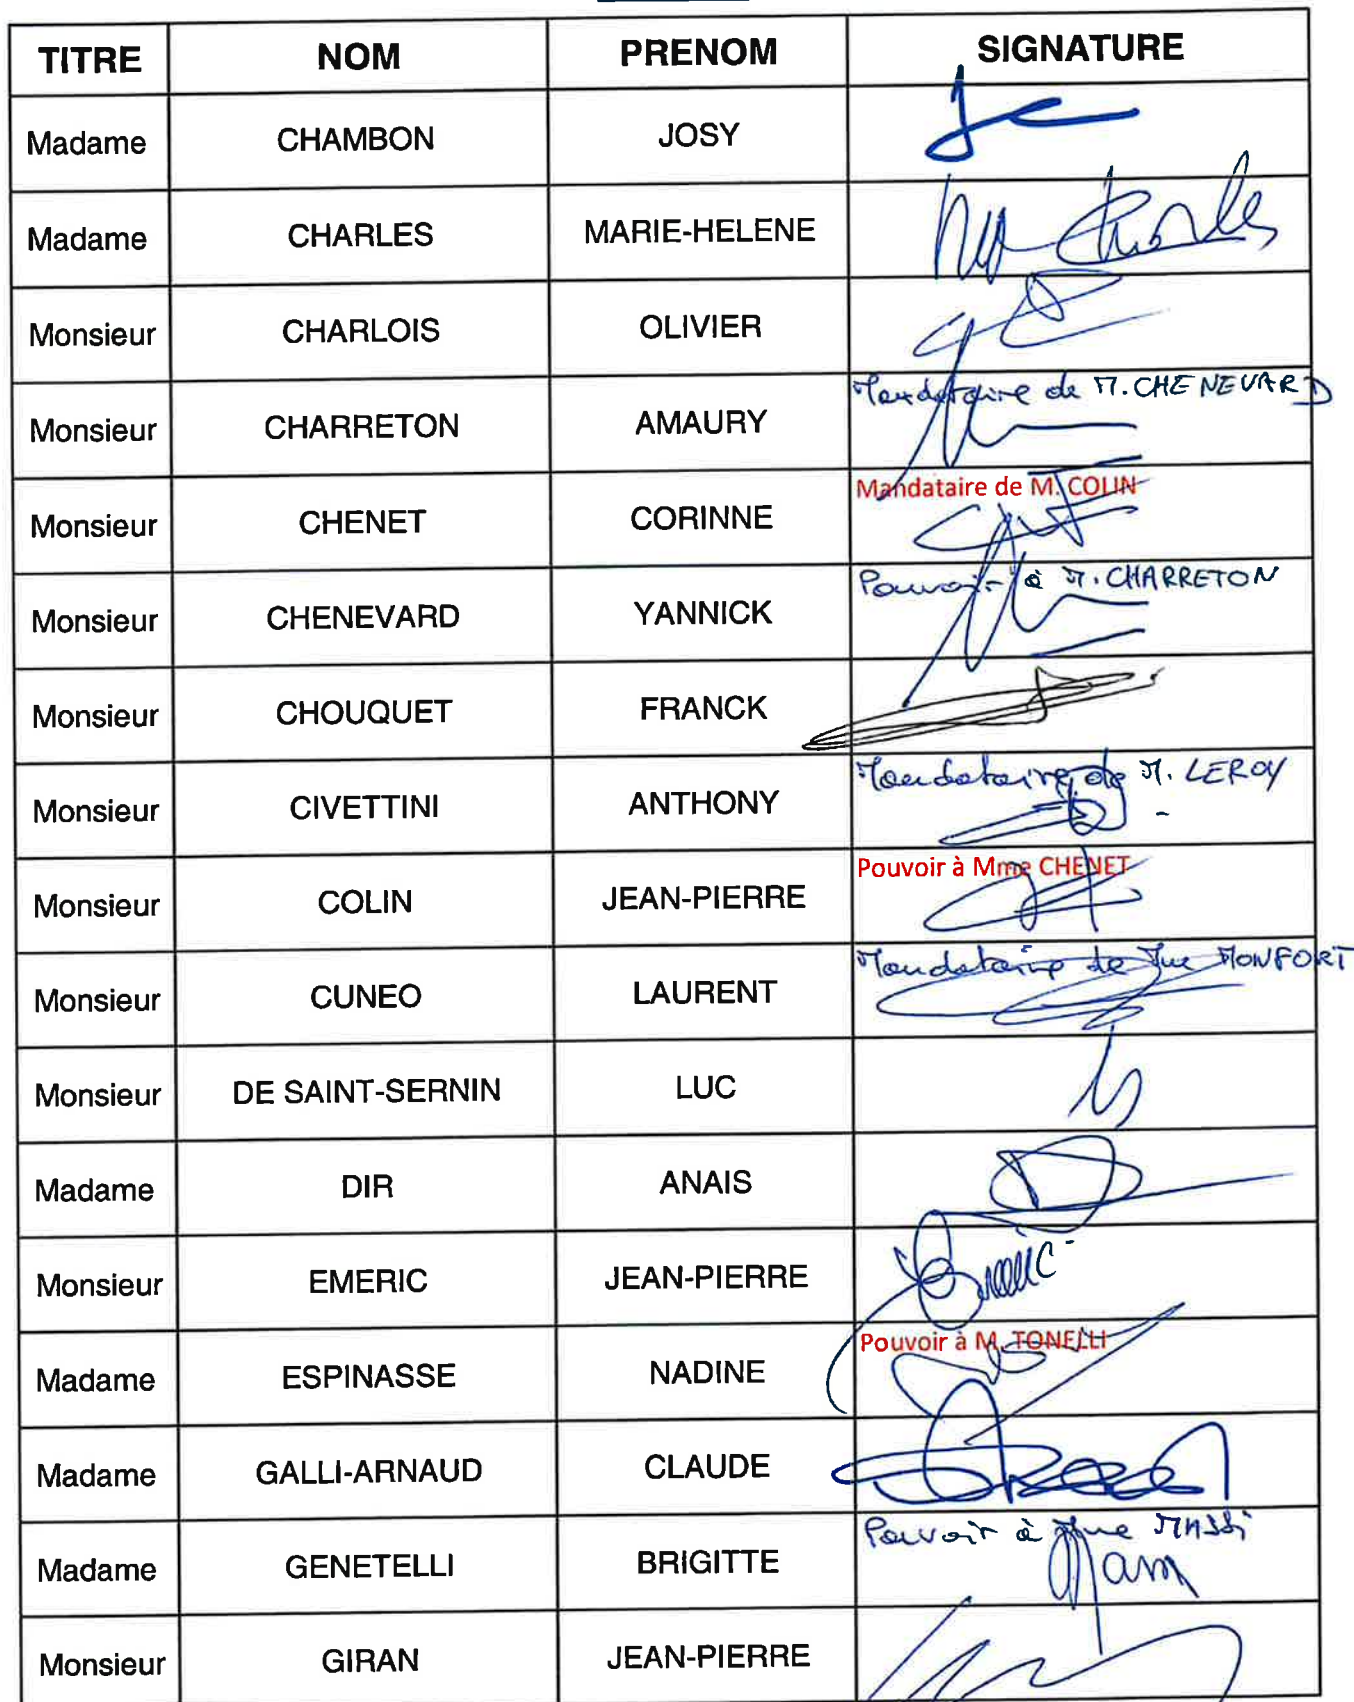 TITRE NOM PRENOM SIGNATURE
Madame CHAMBON JOSY
Madame CHARLES MARIE-HELENE Charles
Monsieur CHARLOIS OLIVIER
Monsieur CHARRETON AMAURY Mandataire de M. CHENEVARD
Monsieur CHENET CORINNE Mandataire de M. COLIN
Monsieur CHENEVARD YANNICK Pouvoir à M. CHARRETON
Monsieur CHOUQUET FRANCK
Monsieur CIVETTINI ANTHONY Mandataire de M. LEROY
Monsieur COLIN JEAN-PIERRE Pouvoir à Mme CHENET
Monsieur CUNEO LAURENT Mandataire de Mme MONFORT
Monsieur DE SAINT-SERNIN LUC
Madame DIR ANAIS
Monsieur EMERIC JEAN-PIERRE Emeric
Madame ESPINASSE NADINE Pouvoir à M. TONELLI
Madame GALLI-ARNAUD CLAUDE
Madame GENETELLI BRIGITTE Pouvoir à Mme MASSI
Monsieur GIRAN JEAN-PIERRE